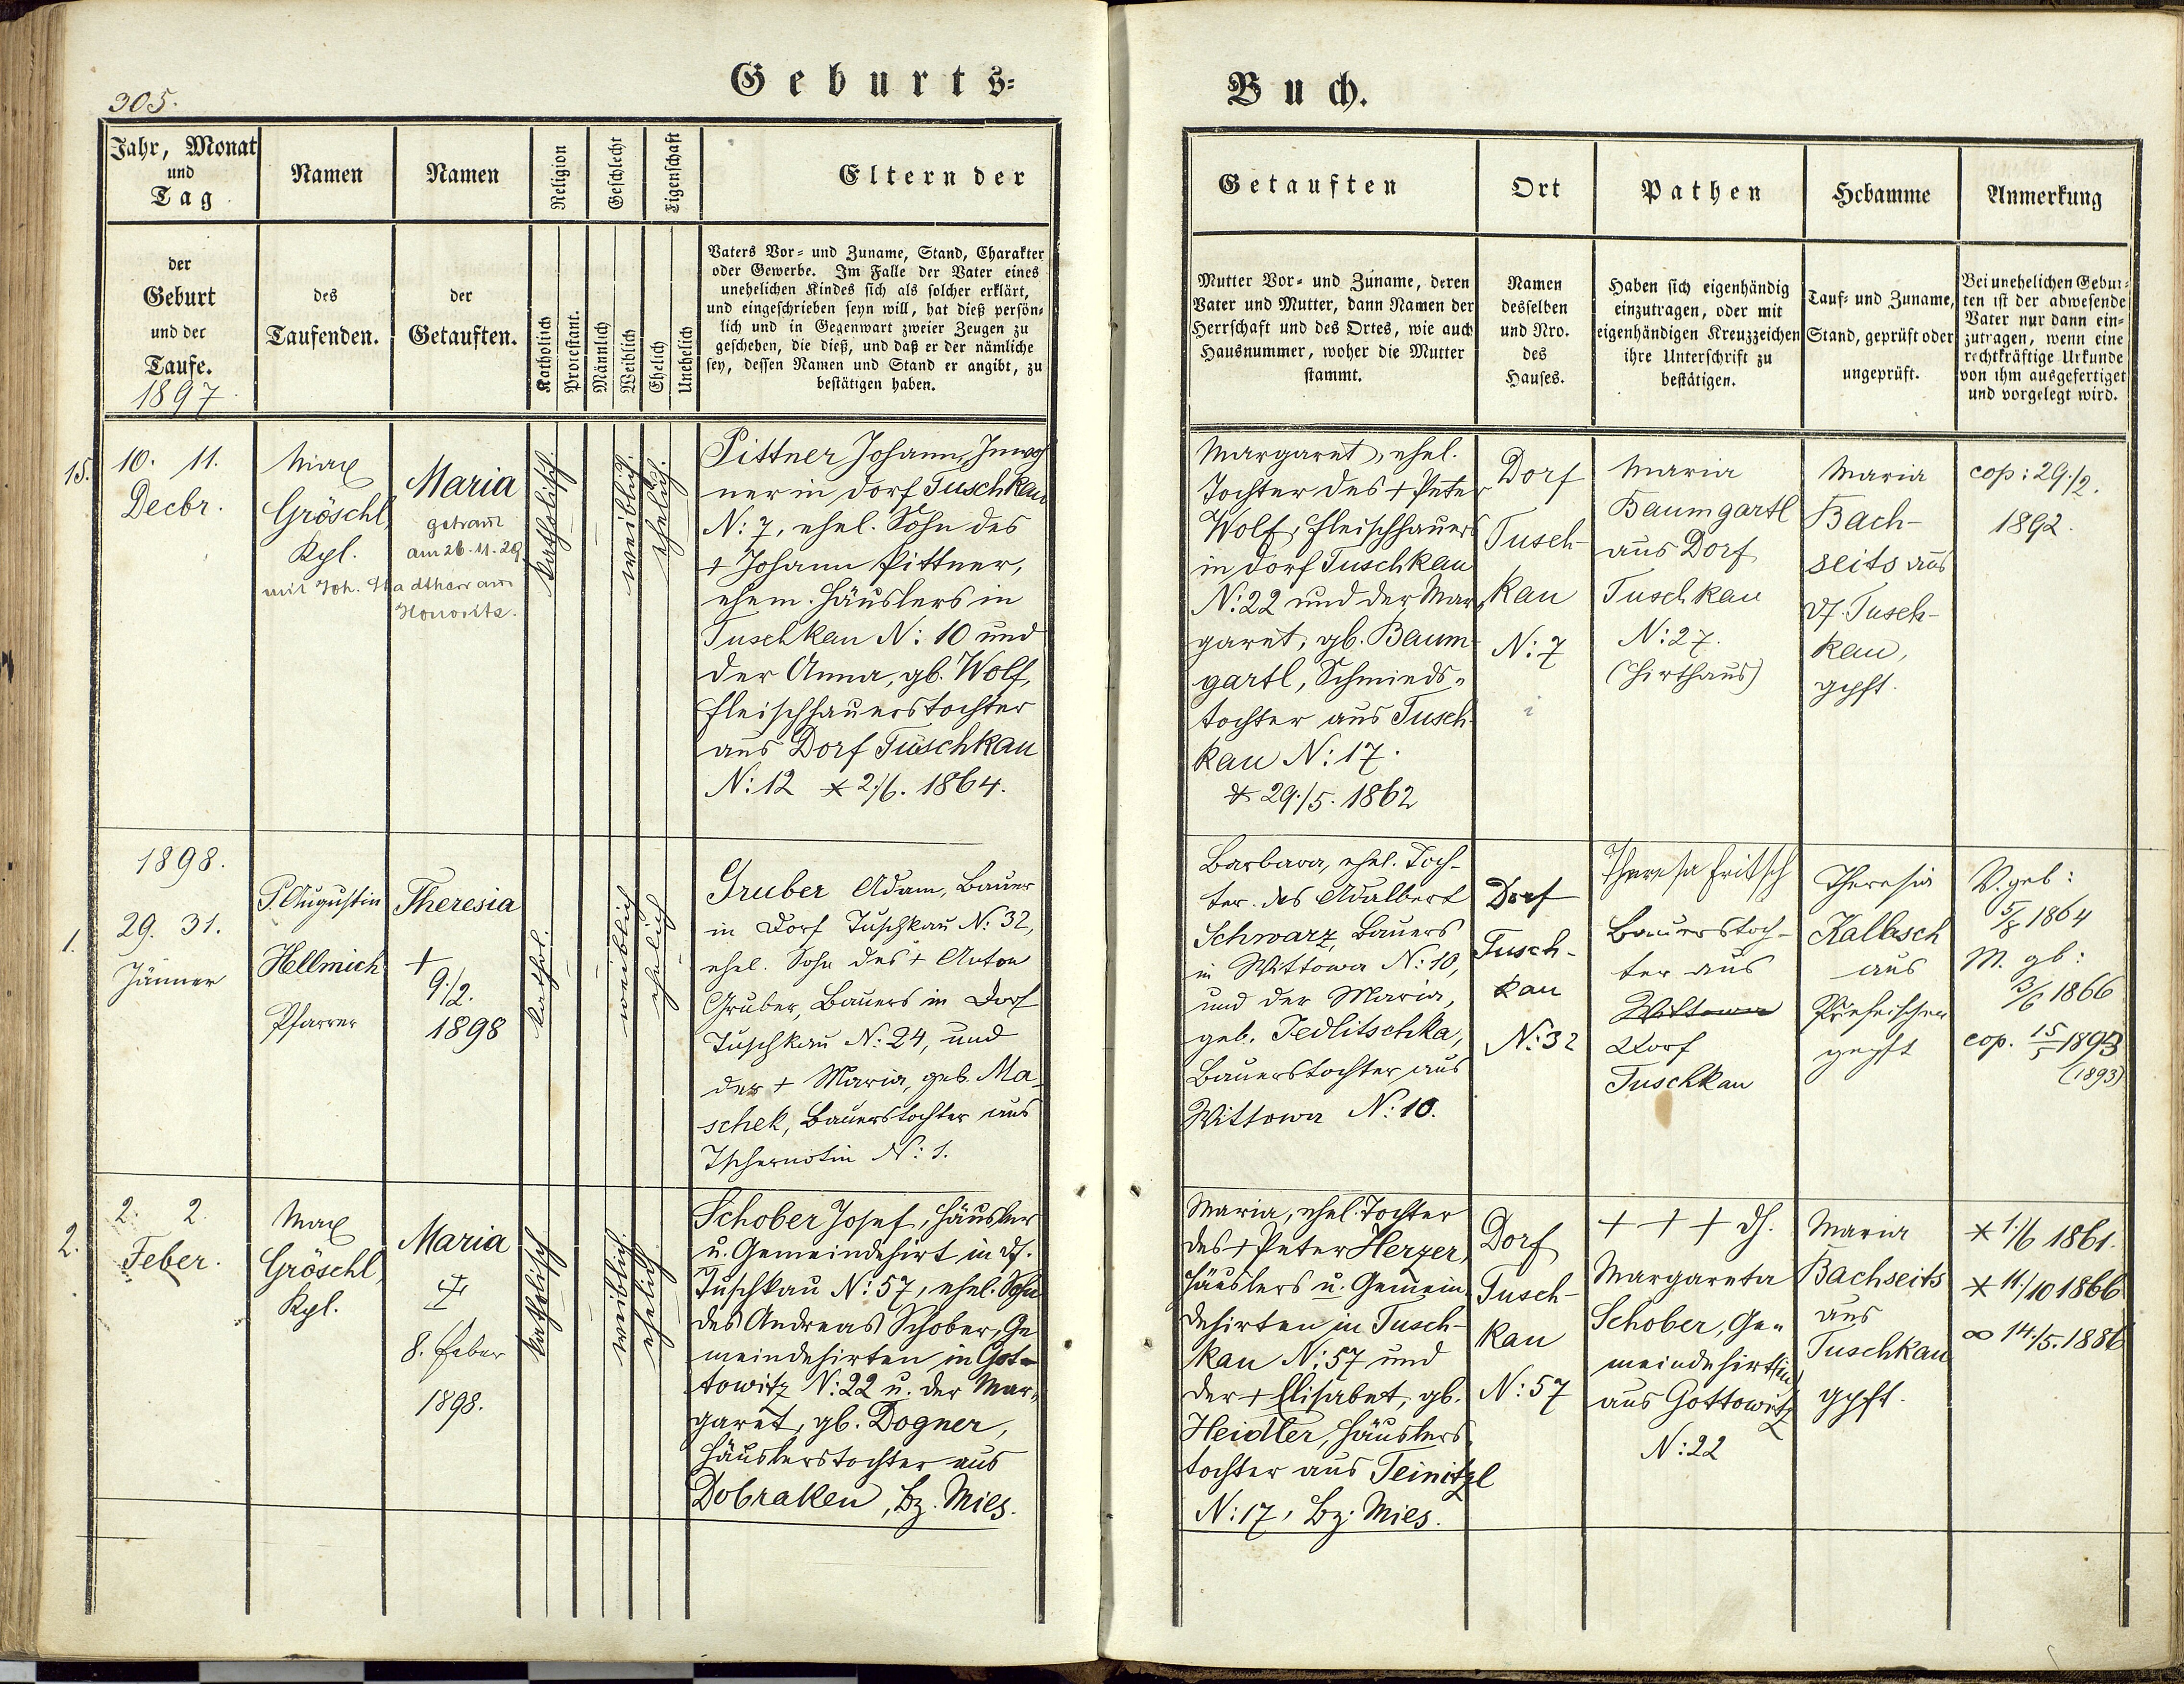 305.
Geburts=
Jahr, Monat
und
Tag
der
Geburt
und der
Taufe.
1897
Namen
des
Taufenden.
Namen
der
Getauften.
Religion
Katholisch
Protestant.
Geschlecht
Männlich
Weiblich
Eigenschaft
Ehelich
Unehelich
Eltern der
Vaters Vor= und Zuname, Stand, Charakter
oder Gewerbe. Im Falle der Vater eines
unehelichen Kindes sich als solcher erklärt,
und eingeschrieben seyn will, hat dieß persön=
lich und in Gegenwart zweier Zeugen zu
geschehen, die dieß, und daß er der nämliche
sey, dessen Namen und Stand er angibt, zu
bestätigen haben.
15.
10. 11.
Decbr.
Max
Gröschl,
Kpl.
Maria
getraut
am 26.11.29
mit Joh. Stadtherr aus
katholisch.
weiblich.
ehelich.
Pittner Johann, Inwoh
ner in Dorf Tuschkau
N: 7, ehel. Sohn des
+ Johann Pittner,
ehem. Häuslers in
Tuschkau N: 10 und
der Anna, gb. Wolf,
Fleischhauerstochter
aus Dorf Tuschkau
N: 12 * 2./6. 1864.
1898.
1.
29. 31.
Jänner
P. Augustin
Hellmich
Pfarrer
Theresia
+
9./2.
1898
kathol.
weiblich
ehelich
Gruber Adam, Bauer
in Dorf Tuschkau N: 32,
ehel. Sohn des + Anton
Gruber, Bauers in Dorf
Tuschkau N: 24, und
der + Maria, geb. Ma-
schek, Bauerstochter aus
Tschernotin N: 1.
2.
2. 2.
Feber.
Max
Gröschl,
Kpl.
Maria
8. Feber
1898.
katholisch
weiblich.
ehelich.
Schober Josef, Häusler
u. Gemeindehirt in Df.
Tuschkau N: 57, ehel. Sohn
des Andreas Schober, Ge
meindehirten in Got=
towitz N: 22 u. der Mar=
garet, gb. Dogner,
Häuslerstochter aus
Dobraken, Bz. Mies.
Buch.
Getauften
Mutter Vor= und Zuname, deren
Vater und Mutter, dann Namen der
Herrschaft und des Ortes, wie auch
Hausnummer, woher die Mutter
stammt.
Ort
Namen
desselben
und Nro.
des
Hauses.
Pathen
Haben sich eigenhändig
einzutragen, oder mit
eigenhändigen Kreuzzeichen
ihre Unterschrift zu
bestätigen.
Hebamme
Tauf= und Zuname,
Stand, geprüft oder
ungeprüft.
Anmerkung
Bei unehelichen Gebur=
ten ist der abwesende
Vater nur dann ein=
zutragen, wenn eine
rechtkräftige Urkunde
von ihm ausgefertiget
und vorgelegt wird.
Margaret, ehel.
Tochter des + Peter
Wolf, Fleischhauers
in Dorf Tuschkau
N: 22 und der Mar=
garet, gb. Baum=
gartl, Schmieds=
tochter aus Tusch-
kau N: 17.
* 29./5. 1862
Dorf
Tusch-
kau
N: 7
Maria
Baumgartl
aus Dorf
Tuschkau
N: 27.
(Hirthaus)
Maria
Bach-
seits aus
Df. Tusch-
kau,
gpft.
cop: 29./2.
1892.
Barbara, ehel. Toch-
ter des Adalbert
Schwarz, Bauers
in Wittowa N: 10,
und der Maria,
geb. Jedlitschka,
Bauerstochter aus
Wittowa N: 10.
Dorf
Tusch-
kau
N: 32
Theresa Fritsch
Bauerstoch-
ter aus
Wittowa
Dorf
Tuschkau
Theresia
Kalbsch
aus
geprft
V. geb:
5/8 1864
M. gb:
3/6 1866
cop. 15/5 1893
(1893)
Maria, ehel. Tochter
des + Peter Herzer,
Häuslers u. Gemein=
dehirten in Tusch-
kau N: 57 und
der + Elisabet, gb.
Heidler, Häuslers=
tochter aus Teinitzl
N: 17, Bz. Mies.
Dorf
Tusch-
kau
N: 57
+ + + dh.
Margareta
Schober, Ge=
meindehirt(in)
aus Gottowitz
N: 22
Maria
Bachseits
aus
Tuschkau
gpft.
* 1./6 1861.
* 11./10 1866
∞ 14./5. 1886